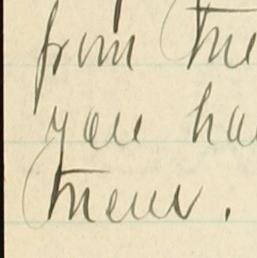 from the
you ha
them.